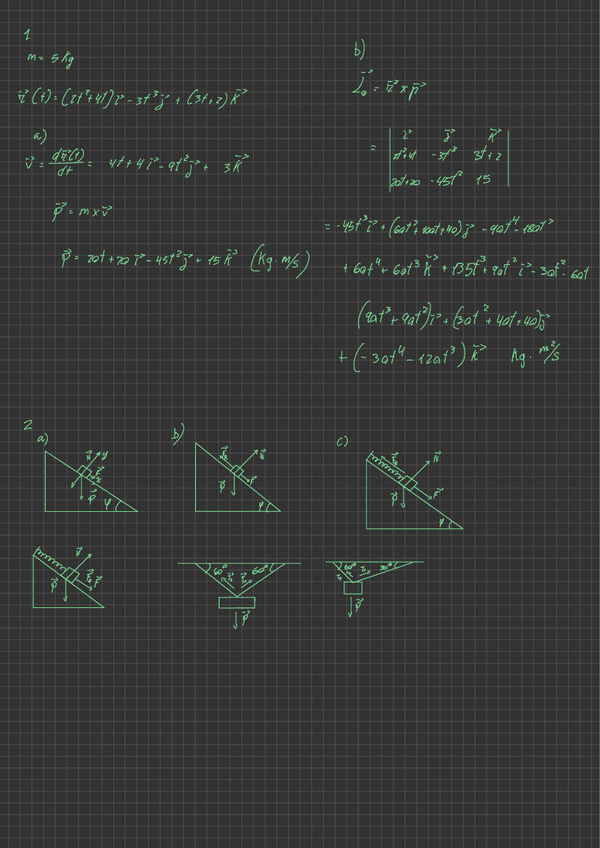 1
m = 5 Kg
r⃗ (t) = (2t²+4t) i⃗ - 3t³ j⃗ + (3t+2) k⃗
a)
v⃗ = dr⃗(t)/dt = 4t+4 i⃗ - 9t² j⃗ + 3 k⃗
p⃗ = m x v⃗
p⃗ = 20t+20 i⃗ - 45t² j⃗ + 15 k⃗ (Kg·m/s)
b)
L⃗₀ = r⃗ x p⃗
i⃗ j⃗ k⃗
= 2t²+4t -3t³ 3t+2
20t+20 -45t² 15
= -45t³ i⃗ + (60t²+100t+40) j⃗ - 90t⁴ - 180t³
+ 60t⁴ + 60t³ k⃗ + 135t³ + 90t² i⃗ - 30t² - 60t
(90t³ + 90t²) i⃗ + (30t² + 40t + 40) j⃗
+ (-30t⁴ - 120t³) k⃗ Kg· m²/s
2
a)
N⃗ y
P⃗ φ
b)
N⃗
P⃗ F⃗ φ
c)
N⃗
P⃗ F⃗ φ
N⃗
P⃗ F⃗
60° 60°
P⃗
60° 30°
P⃗